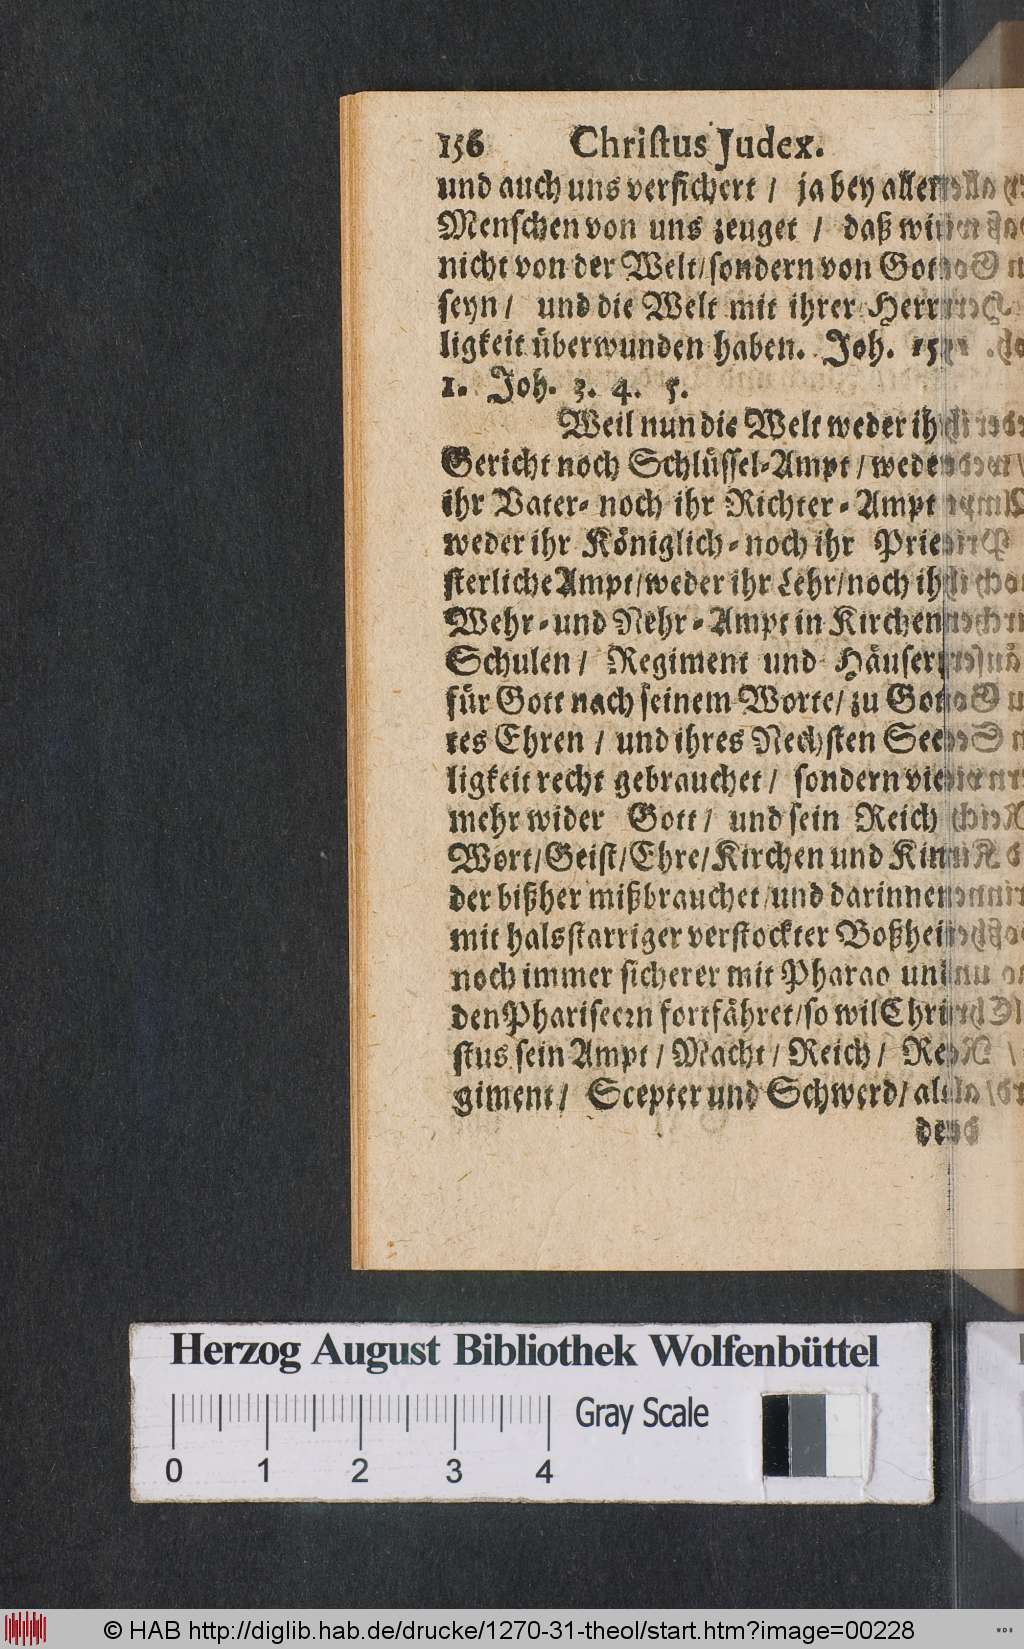 156 Christus Judex.
und auch uns versichert / ja bey allen
Menschen von uns zeuget / daß wir
nicht von der Welt/sondern von Gott
seyn / und die Welt mit ihrer Herr-
ligkeit überwunden haben. Joh. 15.
1. Joh. 3. 4. 5.
Weil nun die Welt weder ihr
Gericht noch Schlüssel-Ampt / weder
ihr Vater- noch ihr Richter-Ampt
weder ihr Königlich-noch ihr Prie-
sterliche Ampt/weder ihr Lehr/noch ihr
Wehr-und Nehr-Ampt in Kirchen
Schulen / Regiment und Häusern
für Gott nach seinem Worte/ zu Got-
tes Ehren / und ihres Nechsten See-
ligkeit recht gebrauchet / sondern viel-
mehr wider Gott / und sein Reich
Wort/Geist/Ehre/Kirchen und Kin-
der bißher mißbrauchet/und darinnen
mit halsstarriger verstockter Boßheit
noch immer sicherer mit Pharao und
den Phariseern fortfähret/so wil Chri-
stus sein Ampt / Macht / Reich / Re-
giment / Scepter und Schwerd/ als
den
Herzog August Bibliothek Wolfenbüttel
Gray Scale
0 1 2 3 4
© HAB http://diglib.hab.de/drucke/1270-31-theol/start.htm?image=00228